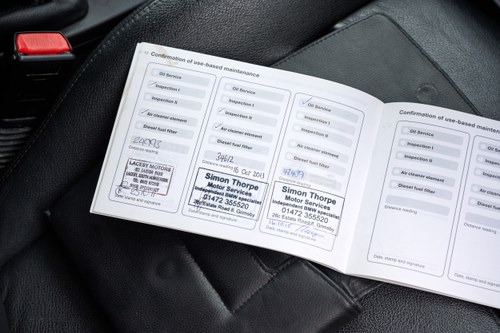 Confirmation of use-based maintenance
Oil Service
Inspection I
Inspection II
Air cleaner element
Diesel fuel filter
Distance reading
LACEBY MOTORS
Date, stamp and signature
Oil Service
Inspection I
Inspection II
Air cleaner element
Diesel fuel filter
Distance reading
16 Oct 2013
Simon Thorpe
Motor Services
Independent BMW specialist
01472 355520
28c Estate Road 5, Grimsby
Date, stamp and signature
Oil Service
Inspection I
Inspection II
Air cleaner element
Diesel fuel filter
Distance reading
Simon Thorpe
Motor Services
Independent BMW specialist
01472 355520
28c Estate Road 5, Grimsby
Date, stamp and signature
Confirmation of use-based main
Oil Service
Inspection I
Inspection II
Air cleaner element
Diesel fuel filter
Distance reading
Date, stamp and signature
Oil Service
Distance reading
Date, stamp